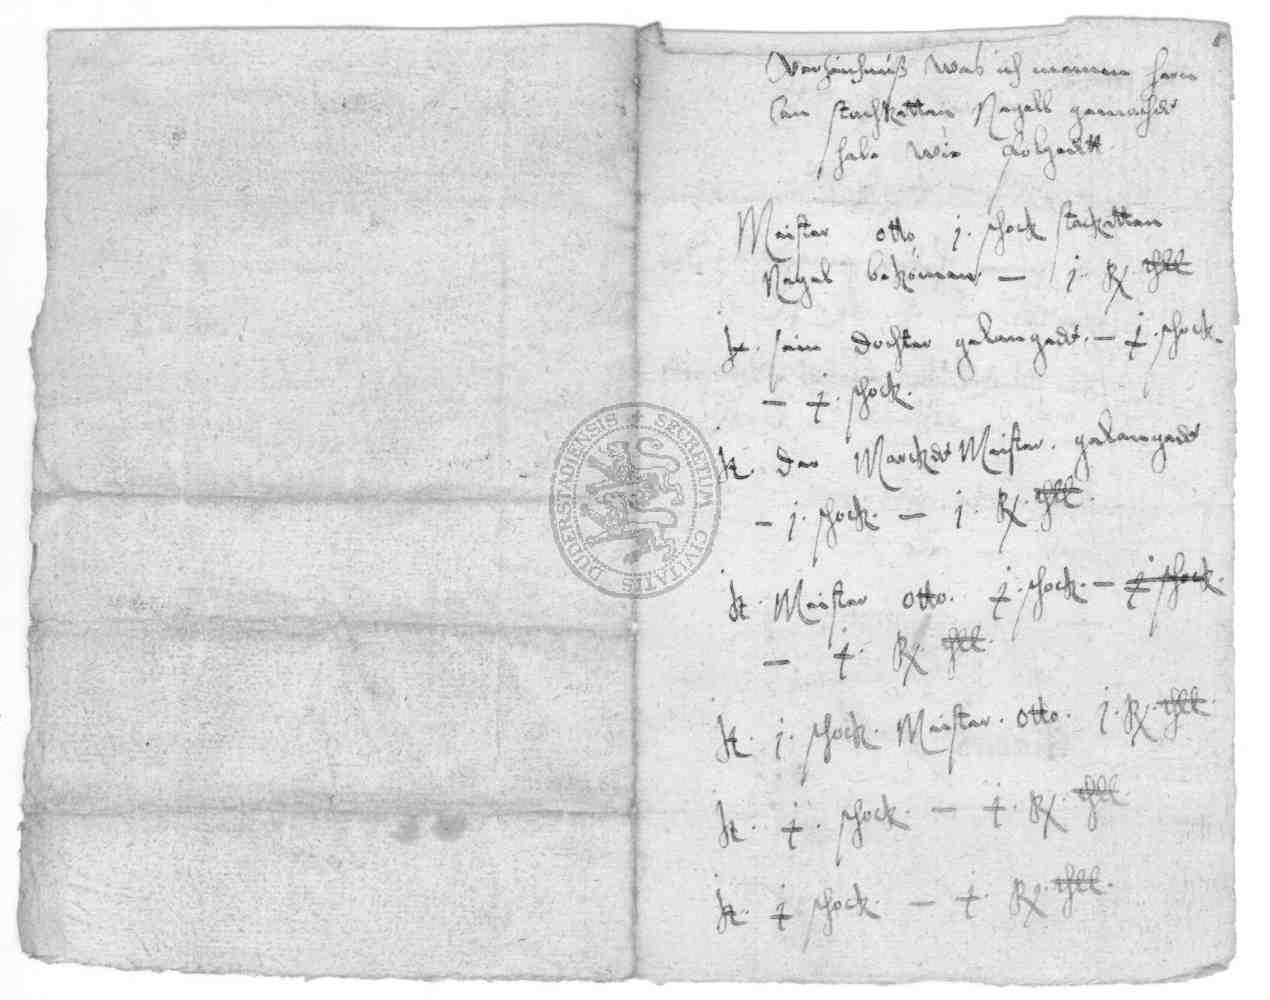 Vorzeichnuß was ich meinem hern
an stachketten Nagell gemachdt
habe wie volgedtt
Meister otto j. schock stacketten
Nagel bekomen — j. Rx thll
It. sein dochter gelangedt. — ɉ. schock.
— ɉ. schock.
It. der Marckedt Meister. gelangedt
— j. schock. — j. Rx. thll.
It. Meister otto. ɉ. schock. — ɉ schock.
— ɉ. Rx. thll.
It. j. schock. Meister. otto. j. Rx. thll.
It. ɉ. schock. — ɉ. Rx. thll.
It. ɉ schock. — ɉ. Rx. thll.
SECRETUM CIVITATIS DUDERSTADIENSIS